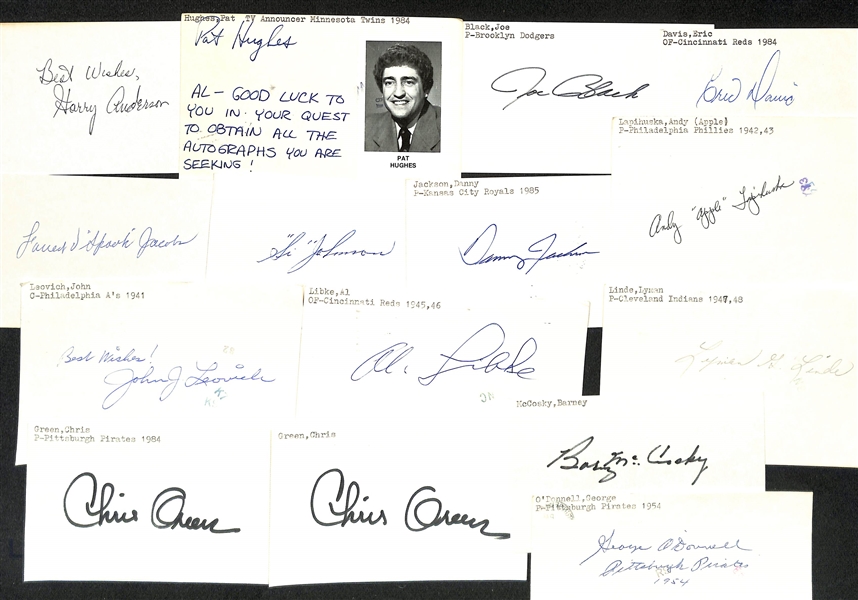 Best Wishes,
Harry Anderson
Hughes,Pat TV Announcer Minnesota Twins 1984
Pat Hughes
AL- GOOD LUCK TO
YOU IN YOUR QUEST
TO OBTAIN ALL THE
AUTOGRAPHS YOU ARE
SEEKING!
PAT
HUGHES
Black,Joe
P-Brooklyn Dodgers
Joe Black
Davis,Eric
OF-Cincinnati Reds 1984
Eric Davis
Lapihuska,Andy (Apple)
P-Philadelphia Phillies 1942,43
Andy "Apple" Lapihuska
Forrest "Spook" Jacobs
"Si" Johnson
Jackson,Danny
P-Kansas City Royals 1985
Danny Jackson
Leovich,John
C-Philadelphia A's 1941
Best Wishes!
John J Leovich
Libke,Al
OF-Cincinnati Reds 1945,46
Al. Libke
Linde,Lyman
P-Cleveland Indians 1947,48
Lyman G. Linde
Green,Chris
P-Pittsburgh Pirates 1984
Chris Green
Green,Chris
Chris Green
McCosky,Barney
Barney McCosky
O'Donnell,George
P-Pittsburgh Pirates 1954
George O'Donnell
Pittsburgh Pirates
1954